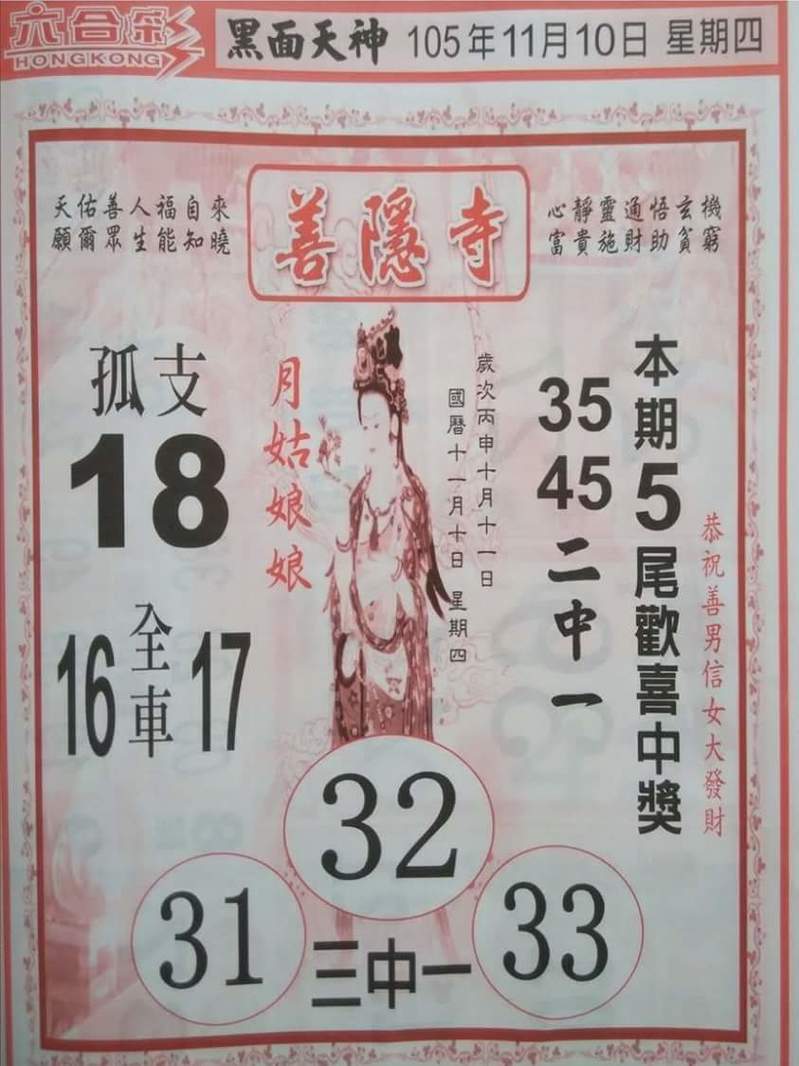 六合彩
HONGKONG
黑面天神 105年11月10日 星期四
天佑善人福自來
願爾眾生能知曉
善隱寺
心靜靈通悟玄機
富貴施財助貧窮
本期5尾歡喜中獎
恭祝善男信女大發財
35
45
二中一
歲次丙申十月十一日
國曆十一月十日 星期四
月姑娘娘
孤支
18
16 全車 17
32
31 三中一 33